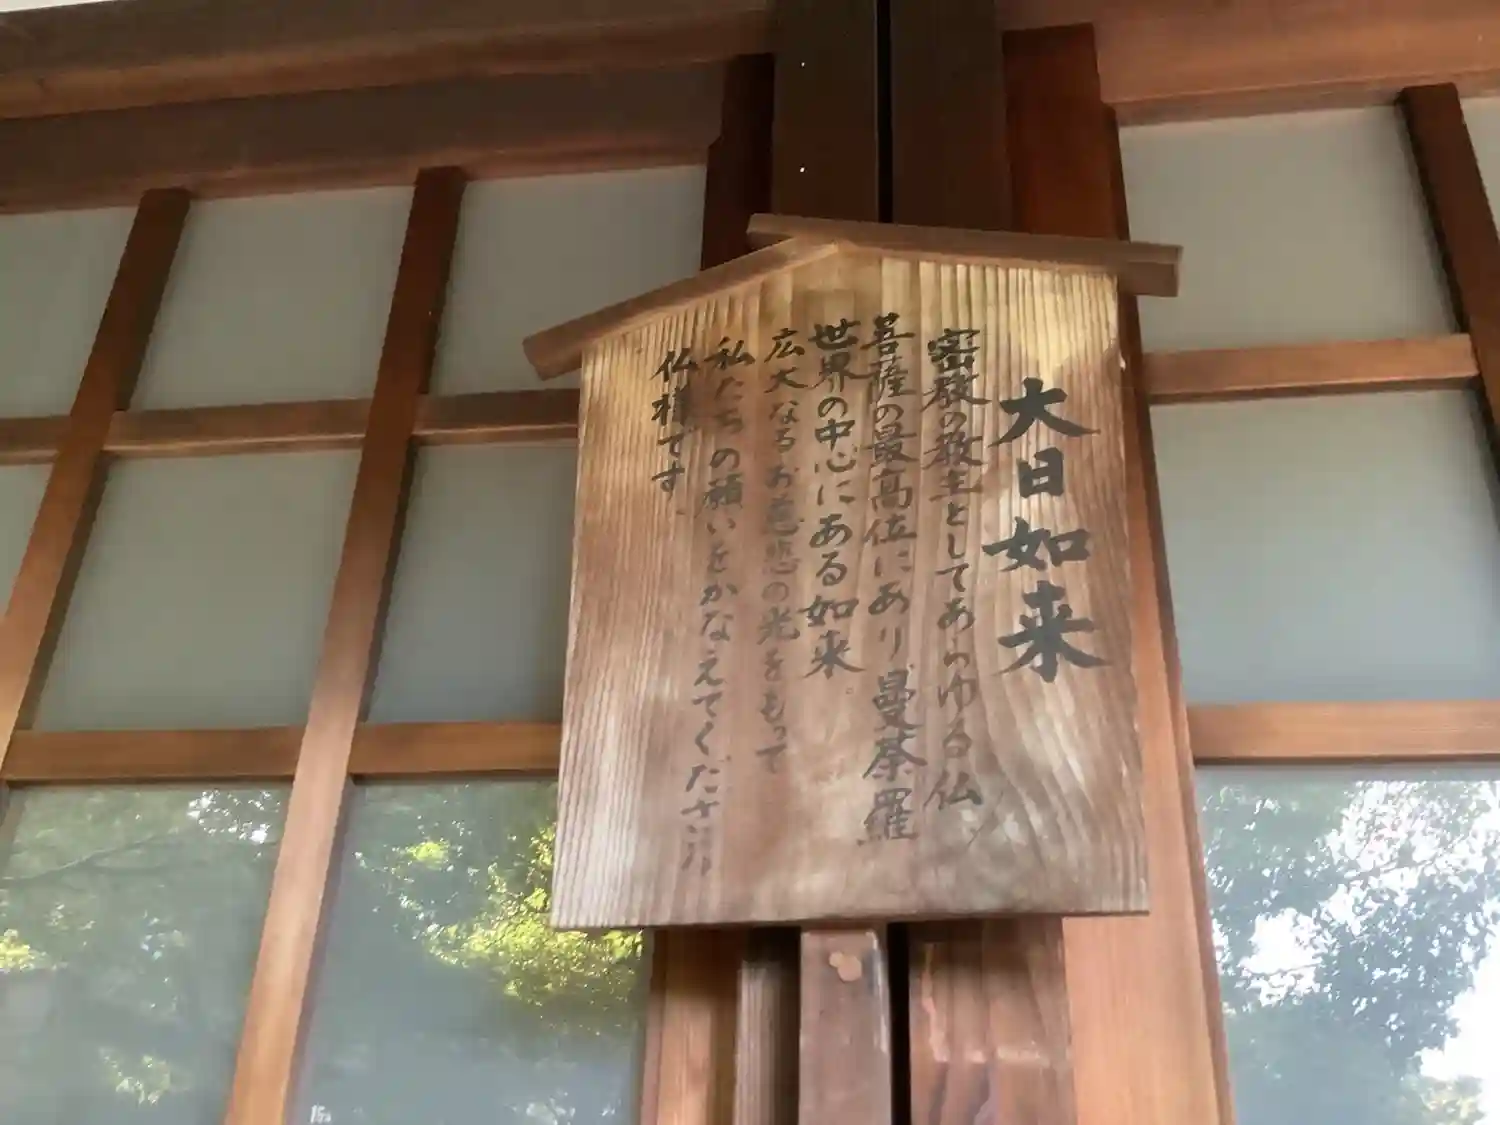 大日如来
密教の教主としてあらゆる仏、
菩薩の最高位にあり曼荼羅
世界の中心にある如来。
広大なるお慈悲の光をもって
私たちの願いをかなえてくださる
仏様です。